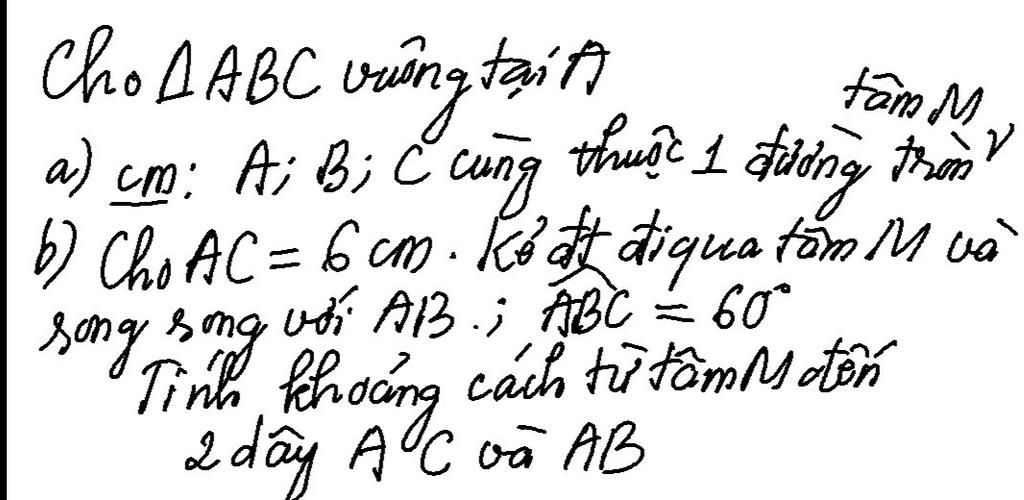 Cho ΔABC vuông tại A
a) cm: A; B; C cùng thuộc 1 đường tròn tâm M
b) Cho AC = 6 cm. Kẻ đt đi qua tâm M và
song song với AB.; ABC = 60°
Tính khoảng cách từ tâm M đến
2 dây AC và AB